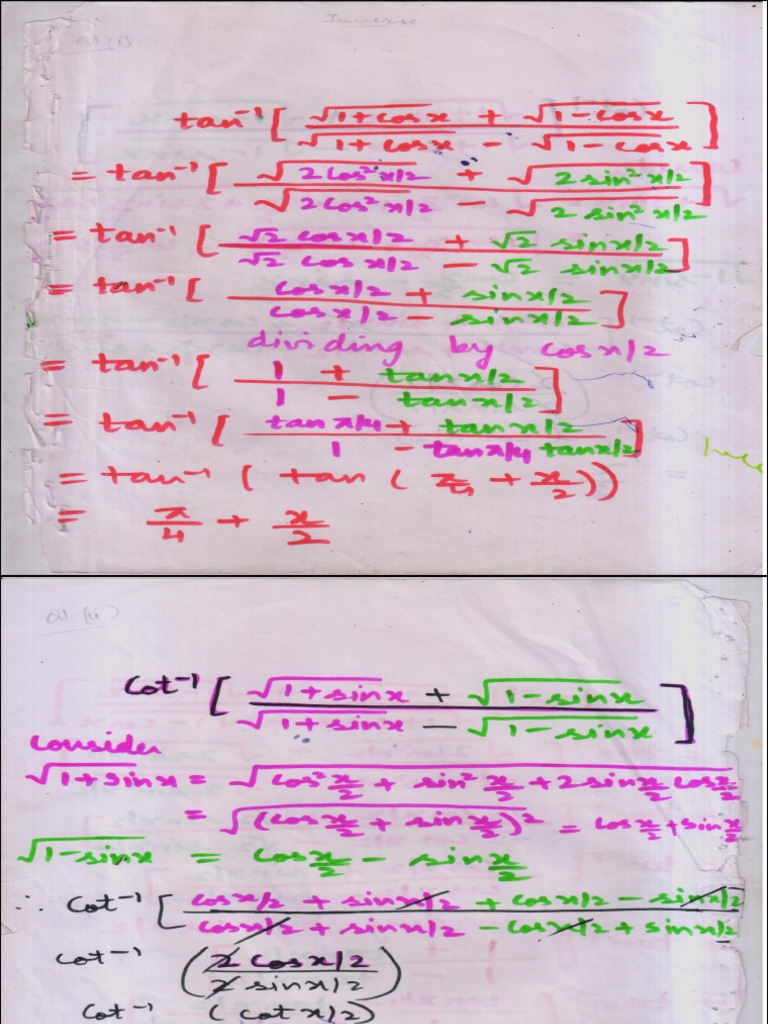 Inverse
Q.1 (i)
tan⁻¹ [ (√(1+cosx) + √(1-cosx)) / (√(1+cosx) - √(1-cosx)) ]
= tan⁻¹ [ (√(2cos²x/2) + √(2sin²x/2)) / (√(2cos²x/2) - √(2sin²x/2)) ]
= tan⁻¹ [ (√2 cosx/2 + √2 sinx/2) / (√2 cosx/2 - √2 sinx/2) ]
= tan⁻¹ [ (cosx/2 + sinx/2) / (cosx/2 - sinx/2) ]
dividing by cosx/2
= tan⁻¹ [ (1 + tanx/2) / (1 - tanx/2) ]
= tan⁻¹ [ (tanπ/4 + tanx/2) / (1 - tanπ/4 tanx/2) ]
= tan⁻¹ ( tan ( π/4 + x/2 ))
= π/4 + x/2
Q.1 (ii)
Cot⁻¹ [ (√(1+sinx) + √(1-sinx)) / (√(1+sinx) - √(1-sinx)) ]
Consider
√(1+sinx) = √(cos²x/2 + sin²x/2 + 2sinx/2 cosx/2)
= √((cosx/2 + sinx/2)²) = cosx/2 + sinx/2
√(1-sinx) = cosx/2 - sinx/2
∴ cot⁻¹ [ (cosx/2 + sinx/2 + cosx/2 - sinx/2) / (cosx/2 + sinx/2 - cosx/2 + sinx/2) ]
cot⁻¹ ( 2cosx/2 / 2sinx/2 )
cot⁻¹ ( cotx/2 )